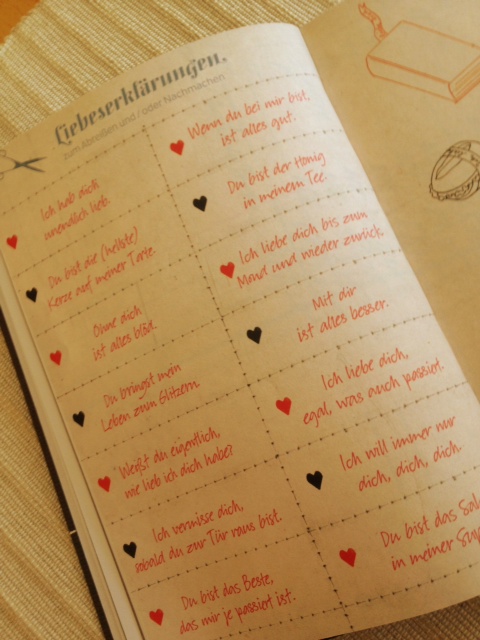 Liebeserklärungen.
zum Abreißen und / oder Nachmachen
Ich hab dich
unendlich lieb.
Du bist die (hellste)
Kerze auf meiner Torte.
Ohne dich
ist alles blöd.
Du bringst mein
Leben zum Glitzern.
Weißt du eigentlich,
wie lieb ich dich habe?
Ich vermisse dich,
sobald du zur Tür raus bist.
Du bist das Beste,
das mir je passiert ist.
Wenn du bei mir bist,
ist alles gut.
Du bist der Honig
in meinem Tee.
Ich liebe dich bis zum
Mond und wieder zurück.
Mit dir
ist alles besser.
Ich liebe dich,
egal, was auch passiert.
Ich will immer nur
dich, dich, dich.
Du bist das
in meiner